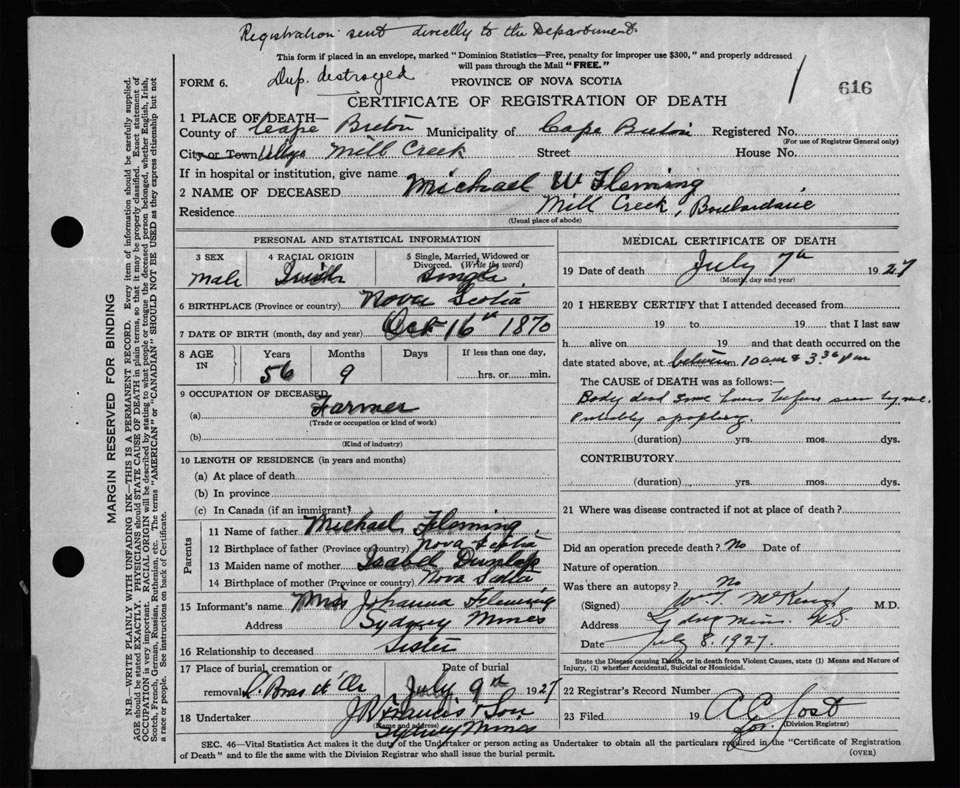 Registration sent directly to the Department
This form if placed in an envelope, marked "Dominion Statistics—Free, penalty for improper use $300," and properly addressed
will pass through the Mail "FREE."
FORM 6. Dup. destroyed PROVINCE OF NOVA SCOTIA 616
CERTIFICATE OF REGISTRATION OF DEATH
1 PLACE OF DEATH—
County of Cape Breton Municipality of Cape Breton Registered No.
(For use of Registrar General only)
City or Town Mill Creek Street House No.
If in hospital or institution, give name
2 NAME OF DECEASED Michael W Fleming
Residence Mill Creek, Boulardarie
(Usual place of abode)
PERSONAL AND STATISTICAL INFORMATION
3 SEX 4 RACIAL ORIGIN 5 Single, Married, Widowed or
Divorced. (Write the word)
Male Single
6 BIRTHPLACE (Province or country) Nova Scotia
7 DATE OF BIRTH (month, day and year) Oct 16th 1870
8 AGE IN Years Months Days If less than one day,
56 9 hrs. or min.
9 OCCUPATION OF DECEASED
(a) Farmer
(Trade or occupation or kind of work)
(b)
(Kind of industry)
10 LENGTH OF RESIDENCE (in years and months)
(a) At place of death
(b) In province
(c) In Canada (if an immigrant)
Parents
11 Name of father Michael Fleming
12 Birthplace of father (Province or country) Nova Scotia
13 Maiden name of mother Isabell Dunlap
14 Birthplace of mother (Province or country) Nova Scotia
15 Informant's name Miss Johanna Fleming
Address Sydney Mines
16 Relationship to deceased Sister
17 Place of burial, cremation or Date of burial
removal L. Bras d'Or July 9th 1927
18 Undertaker J Francis & Son
(Name and address)
Sydney Mines
MEDICAL CERTIFICATE OF DEATH
19 Date of death July 7th 1927
(Month, day and year)
20 I HEREBY CERTIFY that I attended deceased from
19 to 19 that I last saw
h alive on 19 and that death occurred on the
date stated above, at between 10 am & 3.30 pm
The CAUSE of DEATH was as follows:—
Body dead some hours before seen by me.
Probably apoplexy.
(duration) yrs. mos. dys.
CONTRIBUTORY
(duration) yrs. mos. dys.
21 Where was disease contracted if not at place of death?
Did an operation precede death? No Date of
Nature of operation
Was there an autopsy? No
(Signed) M.D.
Address Sydney Mines N.S.
Date July 8. 1927.
State the Disease causing Death, or in death from Violent Causes, state (1) Means and Nature of
Injury, (2) whether Accidental, Suicidal or Homicidal.
22 Registrar's Record Number
23 Filed 19 A C Jost
(Division Registrar)
SEC. 46—Vital Statistics Act makes it the duty of the Undertaker or person acting as Undertaker to obtain all the particulars required in the "Certificate of Registration
of Death" and to file the same with the Division Registrar who shall issue the burial permit. (OVER)
MARGIN RESERVED FOR BINDING
N.B.—WRITE PLAINLY WITH UNFADING INK—THIS IS A PERMANENT RECORD. Every item of information should be carefully supplied.
AGE should be stated EXACTLY. PHYSICIANS should STATE CAUSE OF DEATH in plain terms, so that it may be properly classified. Exact statement of
OCCUPATION is very important. RACIAL ORIGIN will be described by stating to what people or tongue the deceased person belonged, whether English, Irish,
Scotch, French, German, Russian, Ruthenian, etc. The terms "AMERICAN" or "CANADIAN" SHOULD NOT BE USED as they express citizenship but not
a race or people. See instructions on back of Certificate.